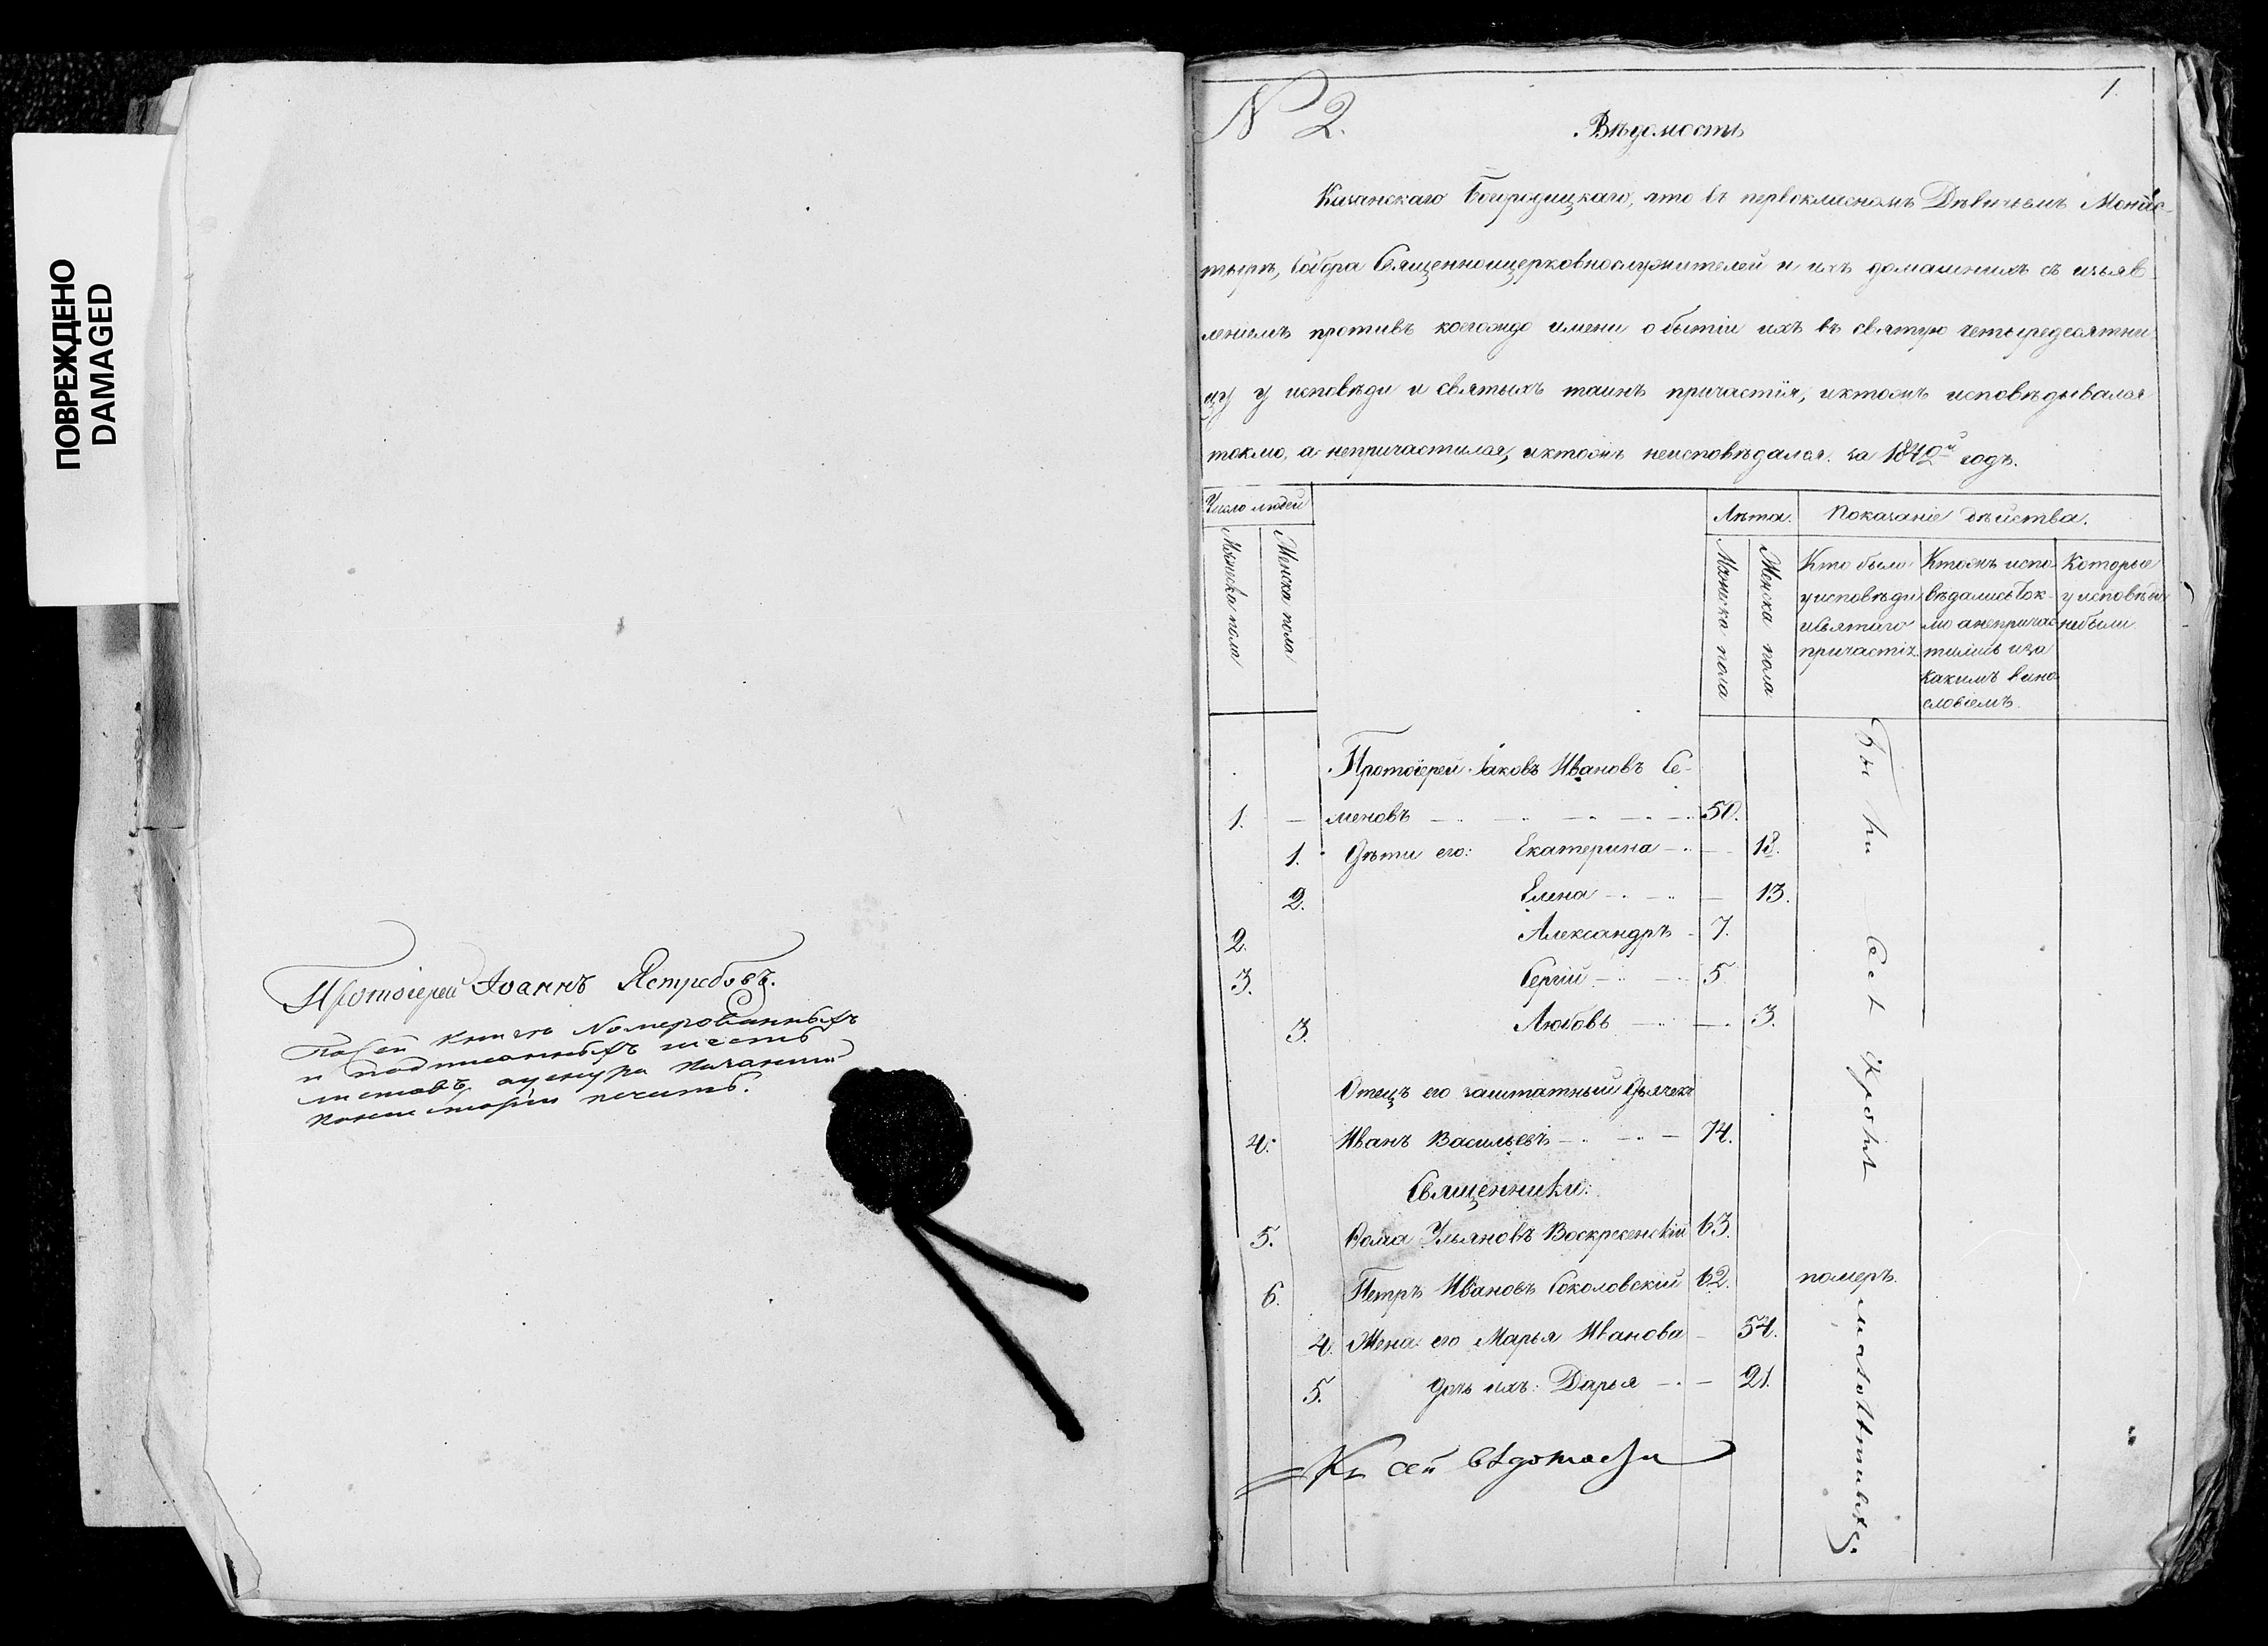 ПОВРЕЖДЕНО
DAMAGED
Протоіерей Іоаннъ Ястребовъ.
Въ сей книгѣ Номерованныхъ
и подписанныхъ шесть
листовъ, Казанской
Консисторіи печать.
1.
№ 2.
Вѣдомость
Казанскаго Богородицкаго, что въ первокласномъ Дѣвичьемъ Монас-
тырѣ, Собора Священноицерковнослужителей и ихъ домашнихъ съ изъяв
леніемъ противъ коегождо имени о бытіи ихъ въ святую четыредесятни
цу у исповѣди и святыхъ таинъ причастія, иктожъ исповѣдывался
токмо, а непричастился, иктожъ неисповѣдался. за 1842й годъ.
Число людей
Лѣта.
Показаніе дѣйства.
Мужеска пола
Женска пола
Мужеска пола
Женска пола
Кто были
у исповѣди
исвятаго
причастія.
Ктожъ испо
вѣдались ток-
мо анепричас
тились иза
какимъ вино
словіемъ.
Которые
у исповѣди
небыли
Протоіерей Іаковъ Ивановъ Се-
1. — меновъ 50.
1. Дѣти его: Екатерина — 18.
2. Елена — 13.
2. Александръ 7.
3. Сергій 5
3. Любовь — 3.
Отецъ его заштатный Дьячекъ
4. Иванъ Васильевъ 74.
Священники:
5. Ѳома Ульяновъ Воскресенскій 63.
6. Петръ Ивановъ Соколовскій 62. померъ.
4. Жена его Марья Иванова — 54.
5. Дочь ихъ: Дарья — 21.
Бы ли всѣ кромѣ малолѣтнихъ.
Къ сей вѣдомости